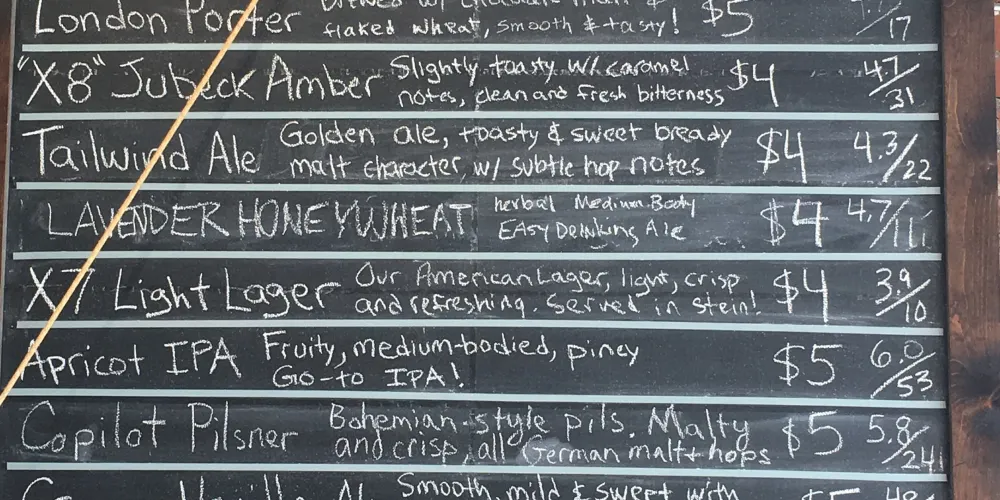 London Porter flaked wheat, smooth & tasty! $5 /17
"X8" Jubeck Amber Slightly toasty w/ caramel $4 4.7/31
notes, clean and fresh bitterness
Tailwind Ale Golden ale, toasty & sweet bready $4 4.3/22
malt character, w/ subtle hop notes
LAVENDER HONEYWHEAT herbal Medium Body $4 4.7/11
EASY Drinking Ale
X7 Light Lager Our American Lager, light, crisp $4 3.9/10
and refreshing. Served in Stein!
Apricot IPA Fruity, medium-bodied, piney $5 6.0/53
Go-to IPA!
Copilot Pilsner Bohemian-style pils. Malty $5 5.8/24
and crisp, all German malt + hops
Smooth, mild & sweet with